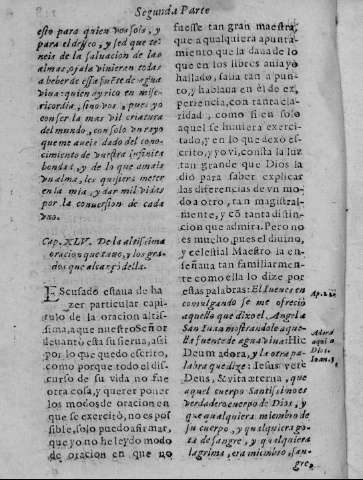 Segunda Parte
esto para quien vos sois, y
para el desseo, y sed que te-
neis de la saluacion de las
almas, ojala vinieran todas
a beber de essa fuẽte de agua
viua: quien ay rico en mise-
ricordia, sino vos, pues yo
con ser la mas vil criatura
del mundo, con solo vn rayo
que me aueis dado del cono-
cimiento de vuestra infinita
bondad, y de lo que amais
vn alma, les quisiera meter
en la mia, y dar mil vidas
por la conuersion de cada
vno.
Cap. XLV. De la altissima
oracion que tuuo, y los gra-
dos que alcançó della.
EScusado estaua de ha-
zer particular capi-
tulo de la oracion altis-
sima, a que nuestro Señor
leuantó esta su sierua, assi
por lo que quedo escrito,
como porque todo el dis-
curso de su vida no fue
otra cosa, y querer poner
los modos de oracion en
que se exercitò, no es pos
sible, solo puedo afirmar,
que yo no he leydo modo
de oracion en que no
fuesse tan gran maestra,
que a qualquiera apunta-
miento que la daua de lo
que en los libros auia yo
hallado, salia tan a pun-
to, y hablaua en èl de ex-
periencia, con tanta cla-
ridad, como si en solo
aquel se huuiera exerci-
tado, y en lo que dexò es-
crito, y yo vi, consta la luz
tan grande que Dios la
diò para saber explicar
las diferencias de vn mo-
do a otro, tan magistral-
mente, y cõ tanta distin-
cion que admira. Pero no
es mucho, pues el diuino,
y celestial Maestro la en-
señaua tan familiarmen-
te como ella lo dize por
estas palabras: El Iueues en
comulgando se me ofreciò
aquello que dixo el Angel a
San Iuan mostrandole aque-
lla fuente de agua viua: Hic
Deum adora, y la otra pa-
labra que dize: Iesus vere
Deus, & vita æterna, que
aquel cuerpo Santissimo es
verdadero cuerpo de Dios, y
que qualquiera miembro de
su cuerpo, y qualquiera go-
ta de sangre, y qualquiera
lagrima, era miembro, san-
gre,
Adora
aqui a
Dios.